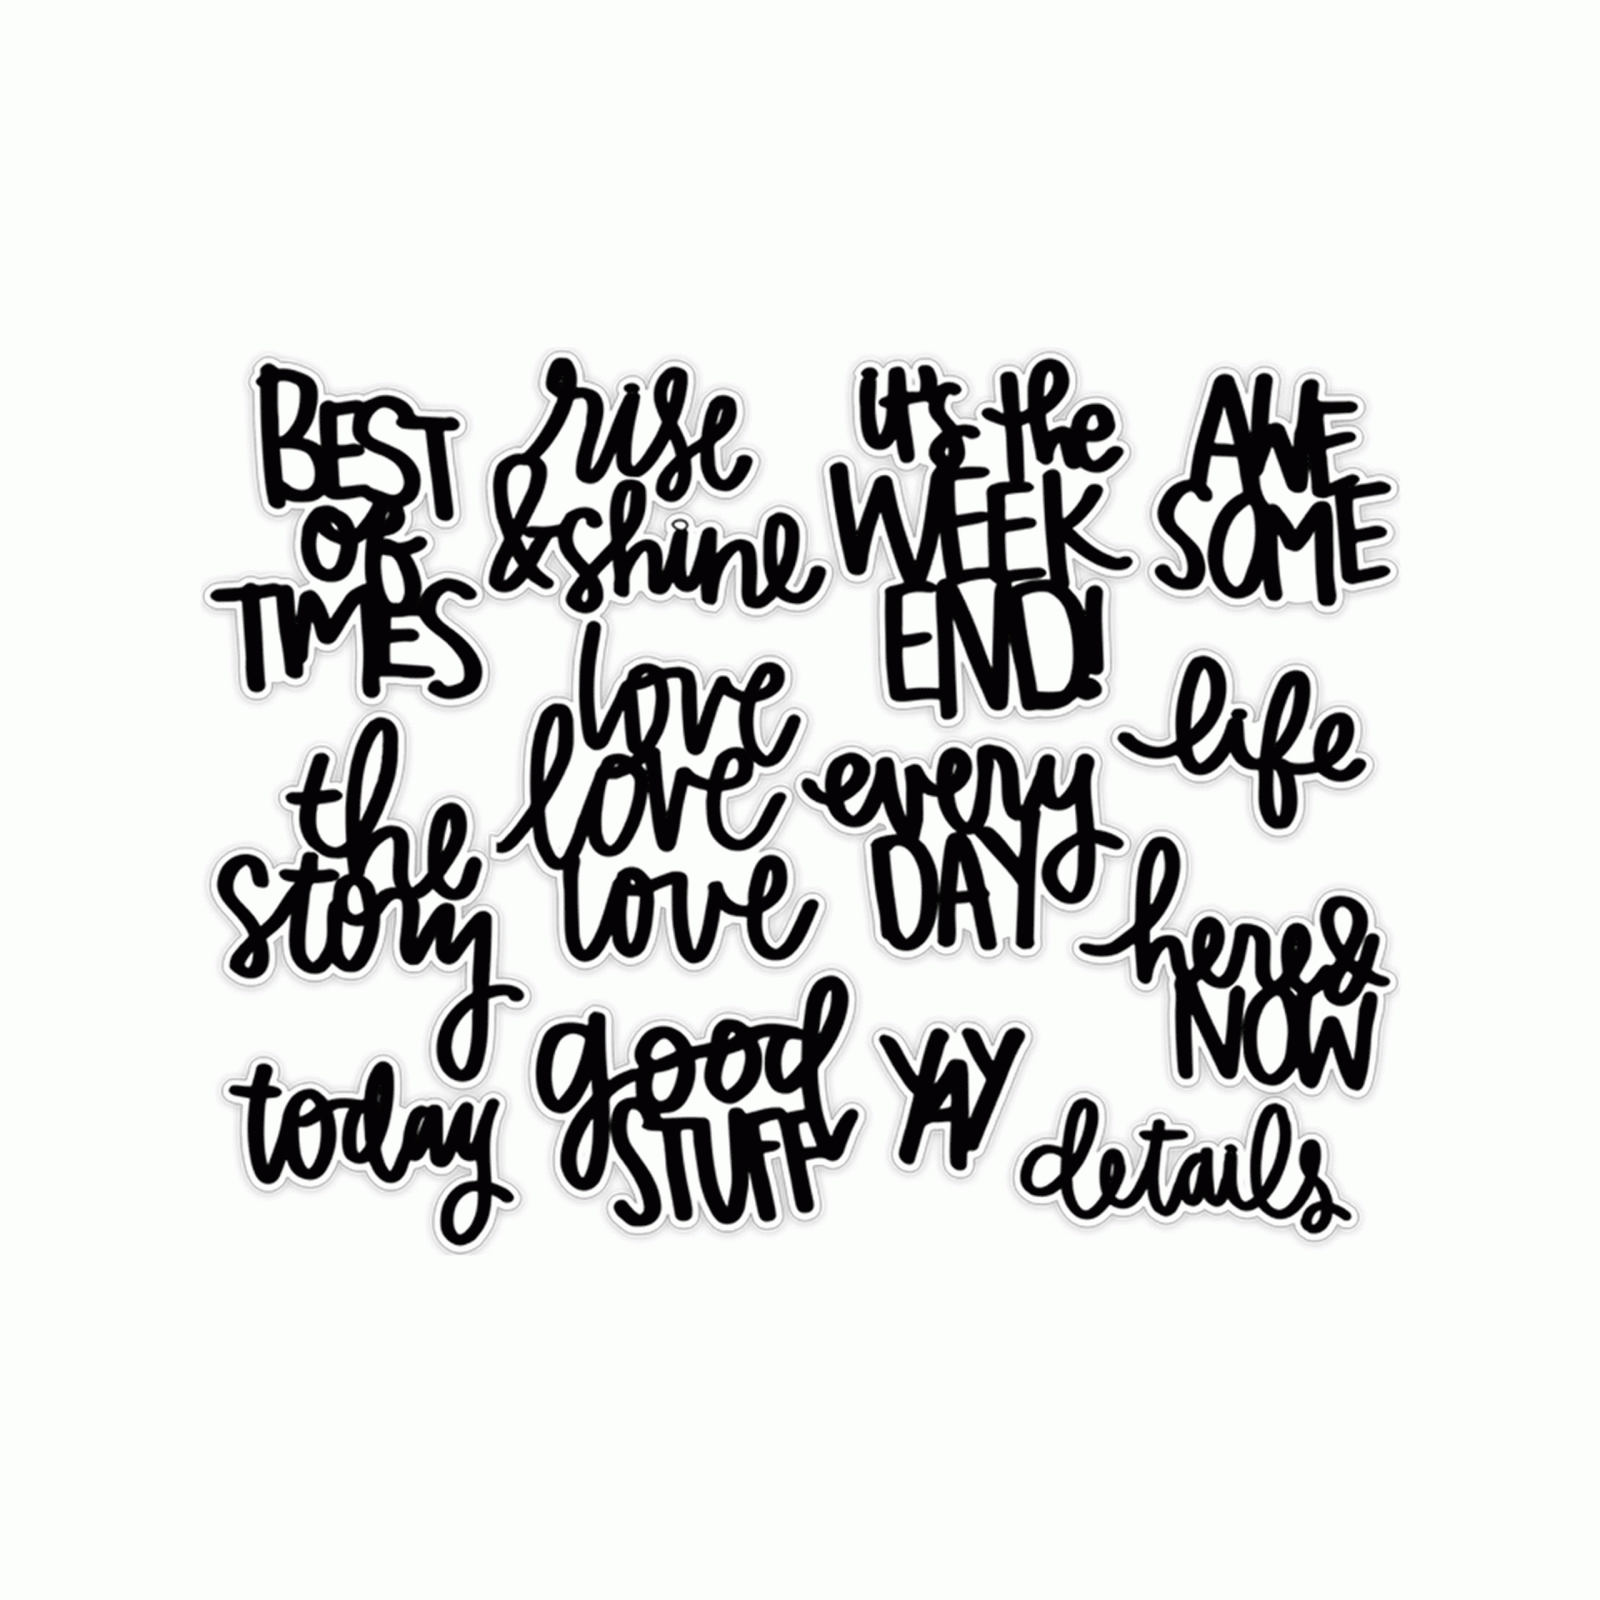 BEST
of
TIMES
rise
&shine
it's the
WEEK
END!
AWE
SOME
love
love
love
life
the
story
every
DAY
here&
NOW
today
good
STUFF
YAY
details